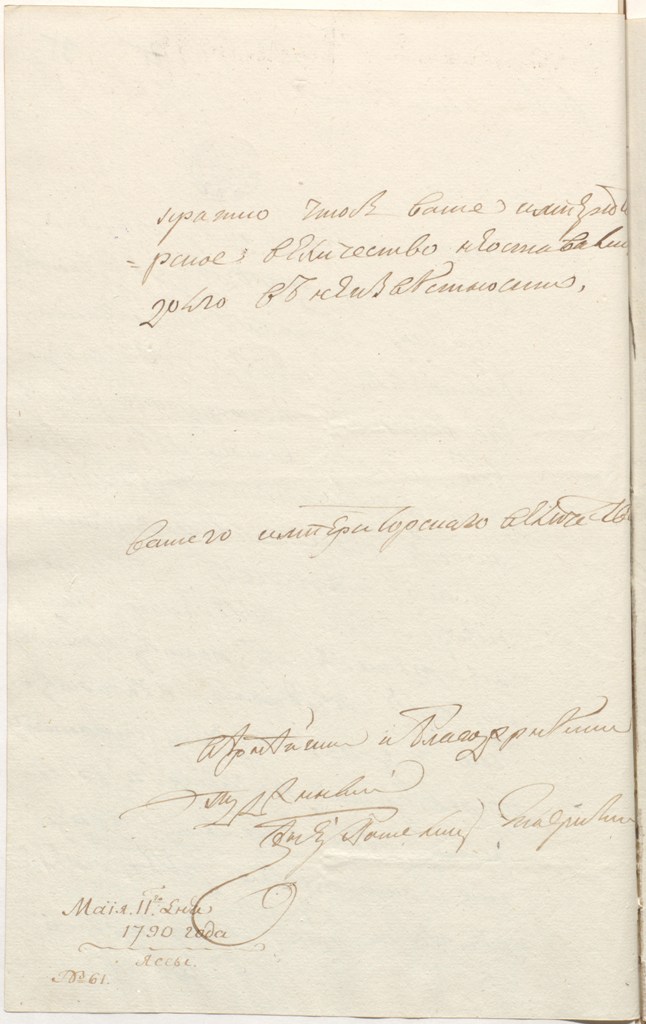 кратно чтоб ваше импера
=рское величество неоставли
было въ неизвѣстности,
вашего императорскаго величества
вѣрнѣйши и благодарнѣйши
подданный
Князь Потемкинъ Таврически
Маїя. 11го дня
1790 года
Яссы.
№ 61.